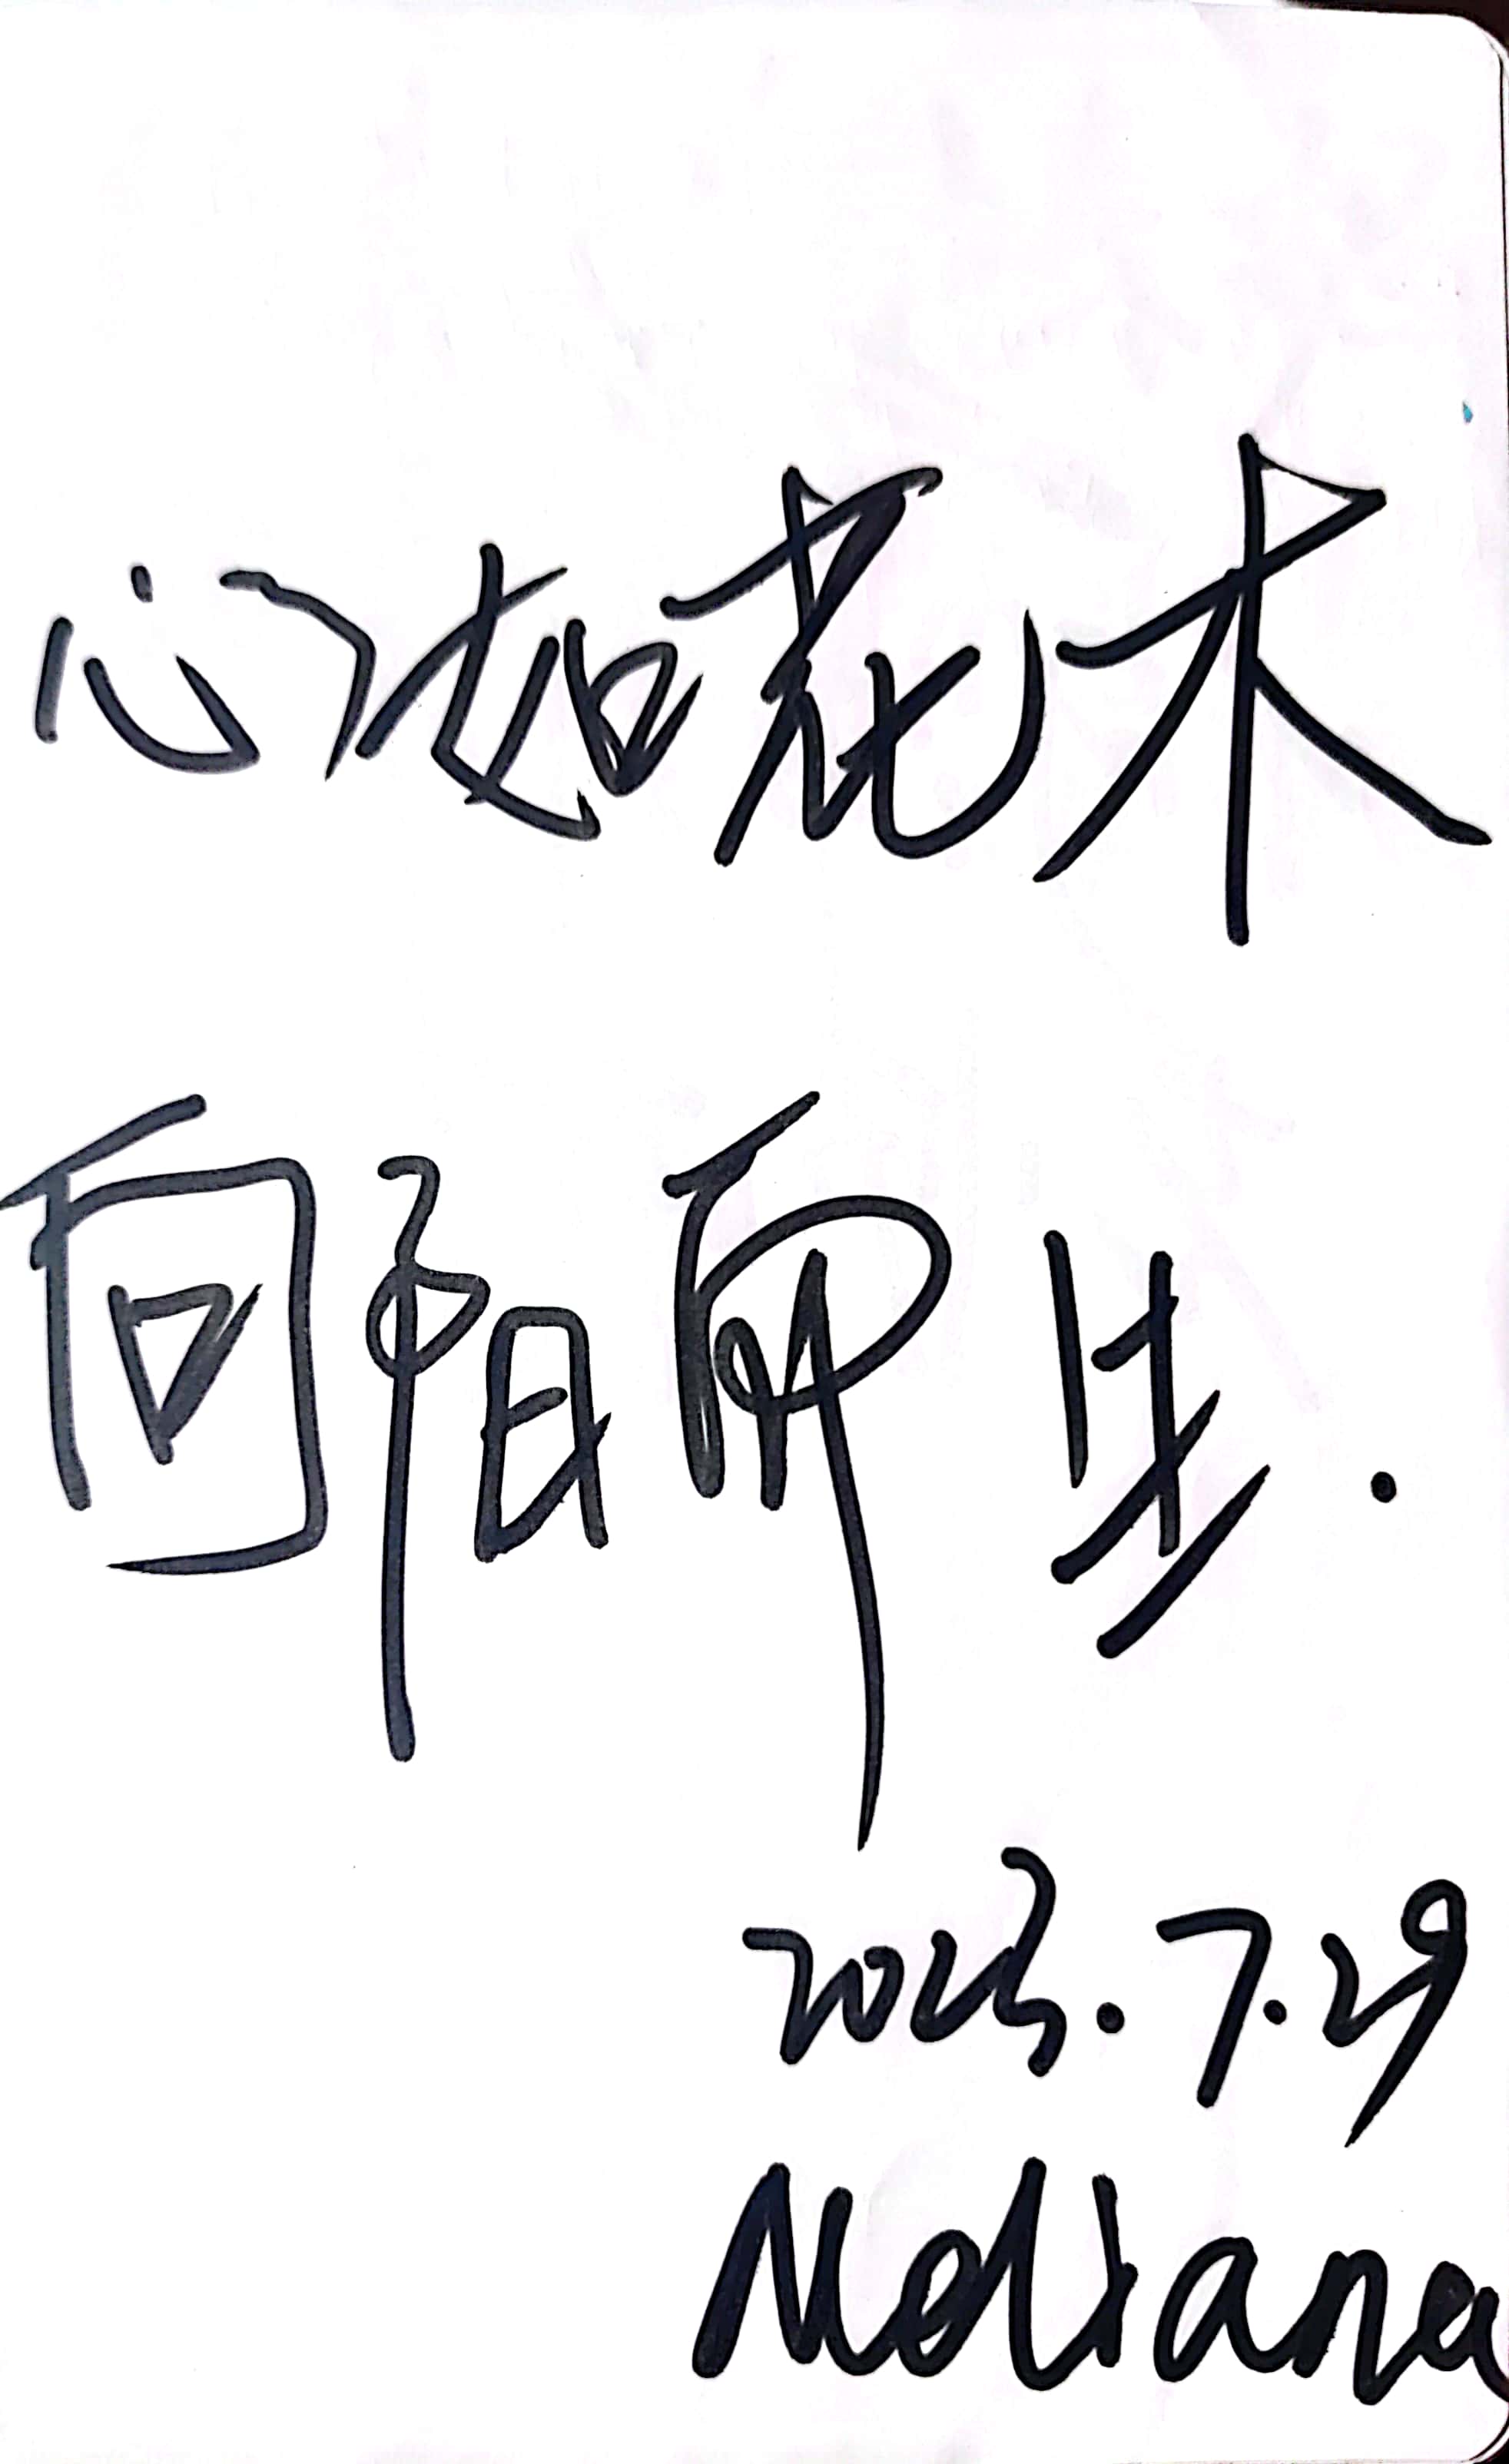 心如花木
向阳而生.
2023.7.29
Meliana